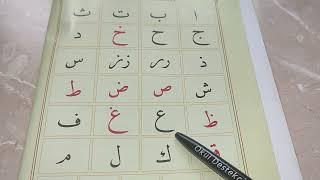 ا ب ت ث
ج ح خ د
ذ رر زز س
ش ص ض ط
ظ ع غ ف
ق ك ل م
Okul Destek